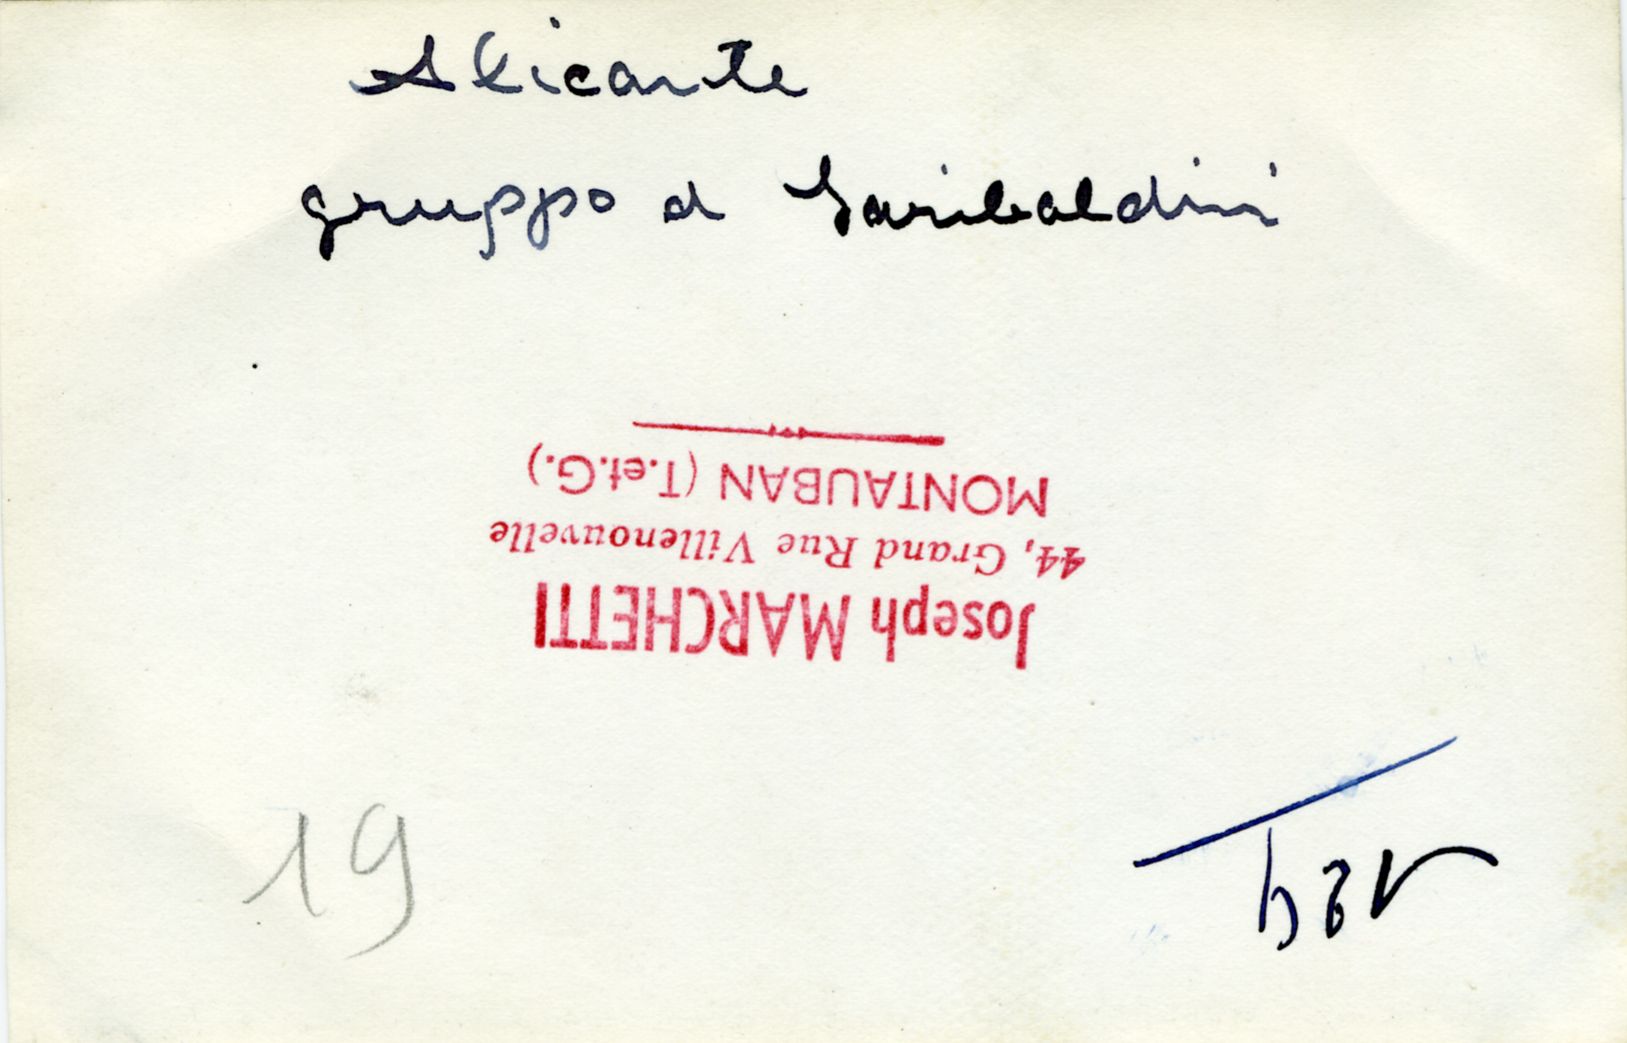 Alicante
gruppo d Garibaldini
Joseph MARCHETTI
44, Grand Rue Villenouvelle
MONTAUBAN (T.et.G.)
19